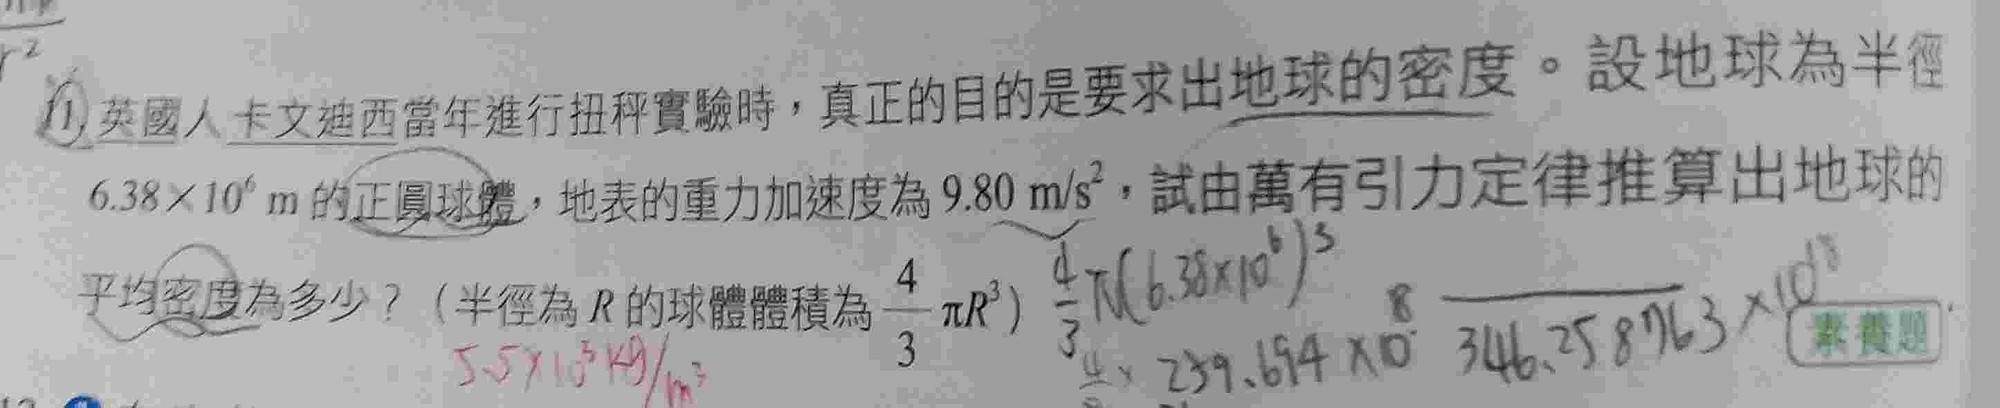 r²
11 英國人卡文迪西當年進行扭秤實驗時，真正的目的是要求出地球的密度。設地球為半徑
6.38×10⁶ m 的正圓球體，地表的重力加速度為 9.80 m/s²，試由萬有引力定律推算出地球的
平均密度為多少？（半徑為 R 的球體體積為 4/3 πR³）
4/3 π(6.38×10⁶)³
5.5×10³ kg/m³
259.694×10
8
346.258763×10¹⁸
素養題